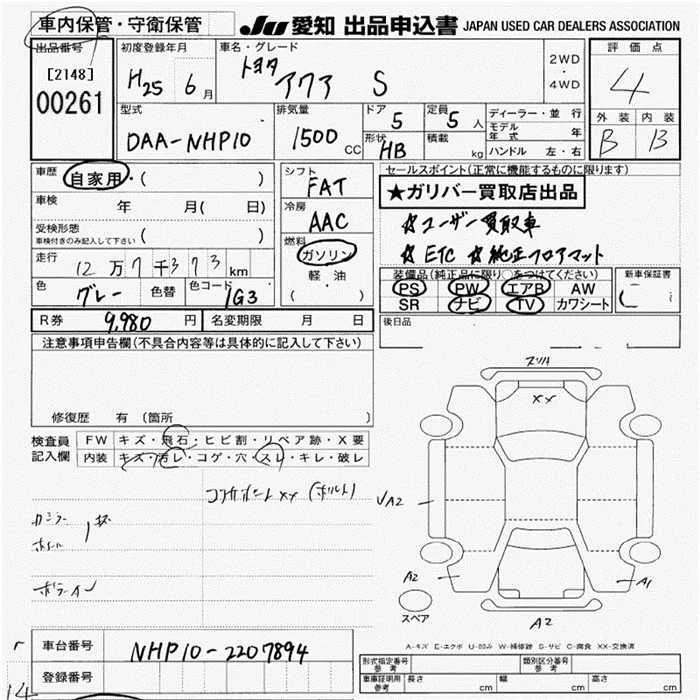 車内保管・守衛保管
JU 愛知 出品申込書 JAPAN USED CAR DEALERS ASSOCIATION
出品番号 初度登録年月 車名・グレード 評価点
[2148] H25 6月 トヨタ アクア S 2WD・4WD 4
00261
型式 排気量 ドア 定員 ディーラー・並行 外装 内装
DAA-NHP10 1500cc 5 5人 モデル年式 年 B B
形状 HB 積載 kg ハンドル 左・右
車歴 自家用・( ) シフト FAT セールスポイント(正常に機能するものに限ります)
★ガリバー買取店出品
車検 年 月( 日) 冷房 AAC ☆ユーザー買取車
受検形態 ( )
車検付きのみ記入して下さい
☆ETC ☆純正フロアマット
走行 12万7千373km 燃料 ガソリン 軽油 ( )
装備品(純正品に限り○をつけてください) 新車保証書
色 グレー 色替 色コード 1G3
PS PW エアB AW
SR ナビ TV カワシート
R券 9,980円 名変期限 月 日 後日品
注意事項申告欄(不具合内容等は具体的に記入して下さい)
修復歴 有 (箇所 )
検査員記入欄 FW キズ・飛石・ヒビ割・リペア跡・X要
内装 キズ・汚レ・コゲ・穴・スレ・キレ・破レ
XX (ボルト)
XX
√A2
A2
A1
スペア
A2
A-キズ E-エクボ U-凹み W-補修跡 S-サビ C-腐食 XX-交換済
車台番号 NHP10-2207894
登録番号
14
形式指定番号 参考 類別区分番号 参考
車庫証明用 参考 長さ cm 幅 cm 高さ cm